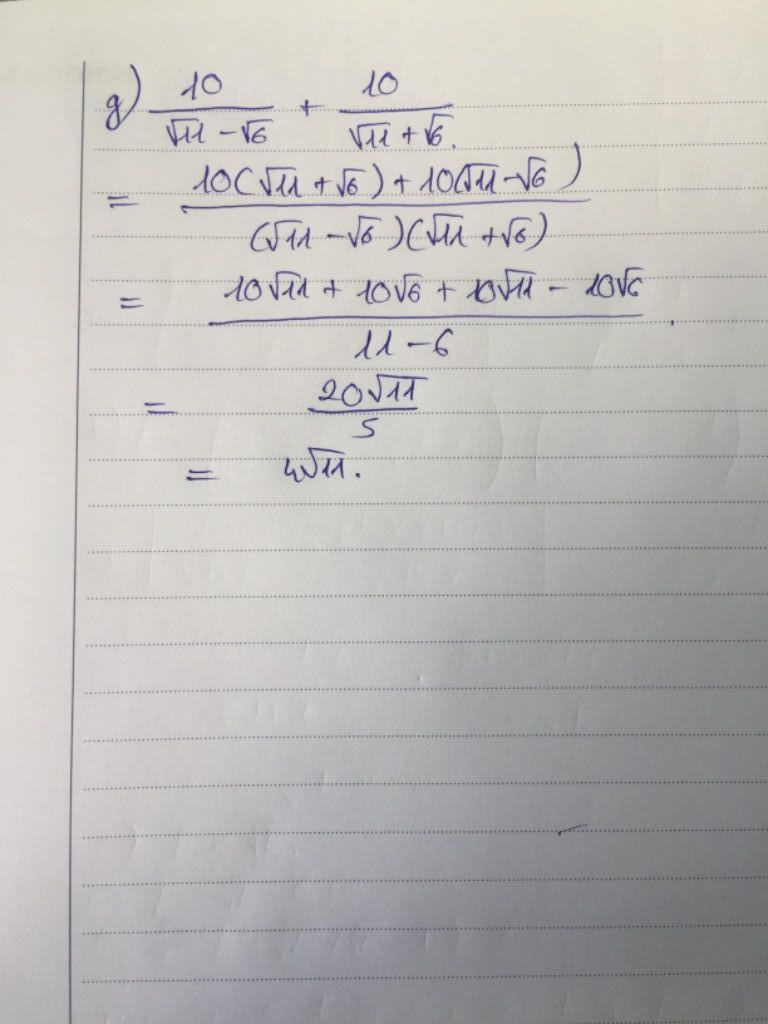 g) 10/(√11 - √6) + 10/(√11 + √6).
= (10(√11 + √6) + 10(√11 - √6))/((√11 - √6)(√11 + √6))
= (10√11 + 10√6 + 10√11 - 10√6)/(11 - 6).
= 20√11/5
= 4√11.